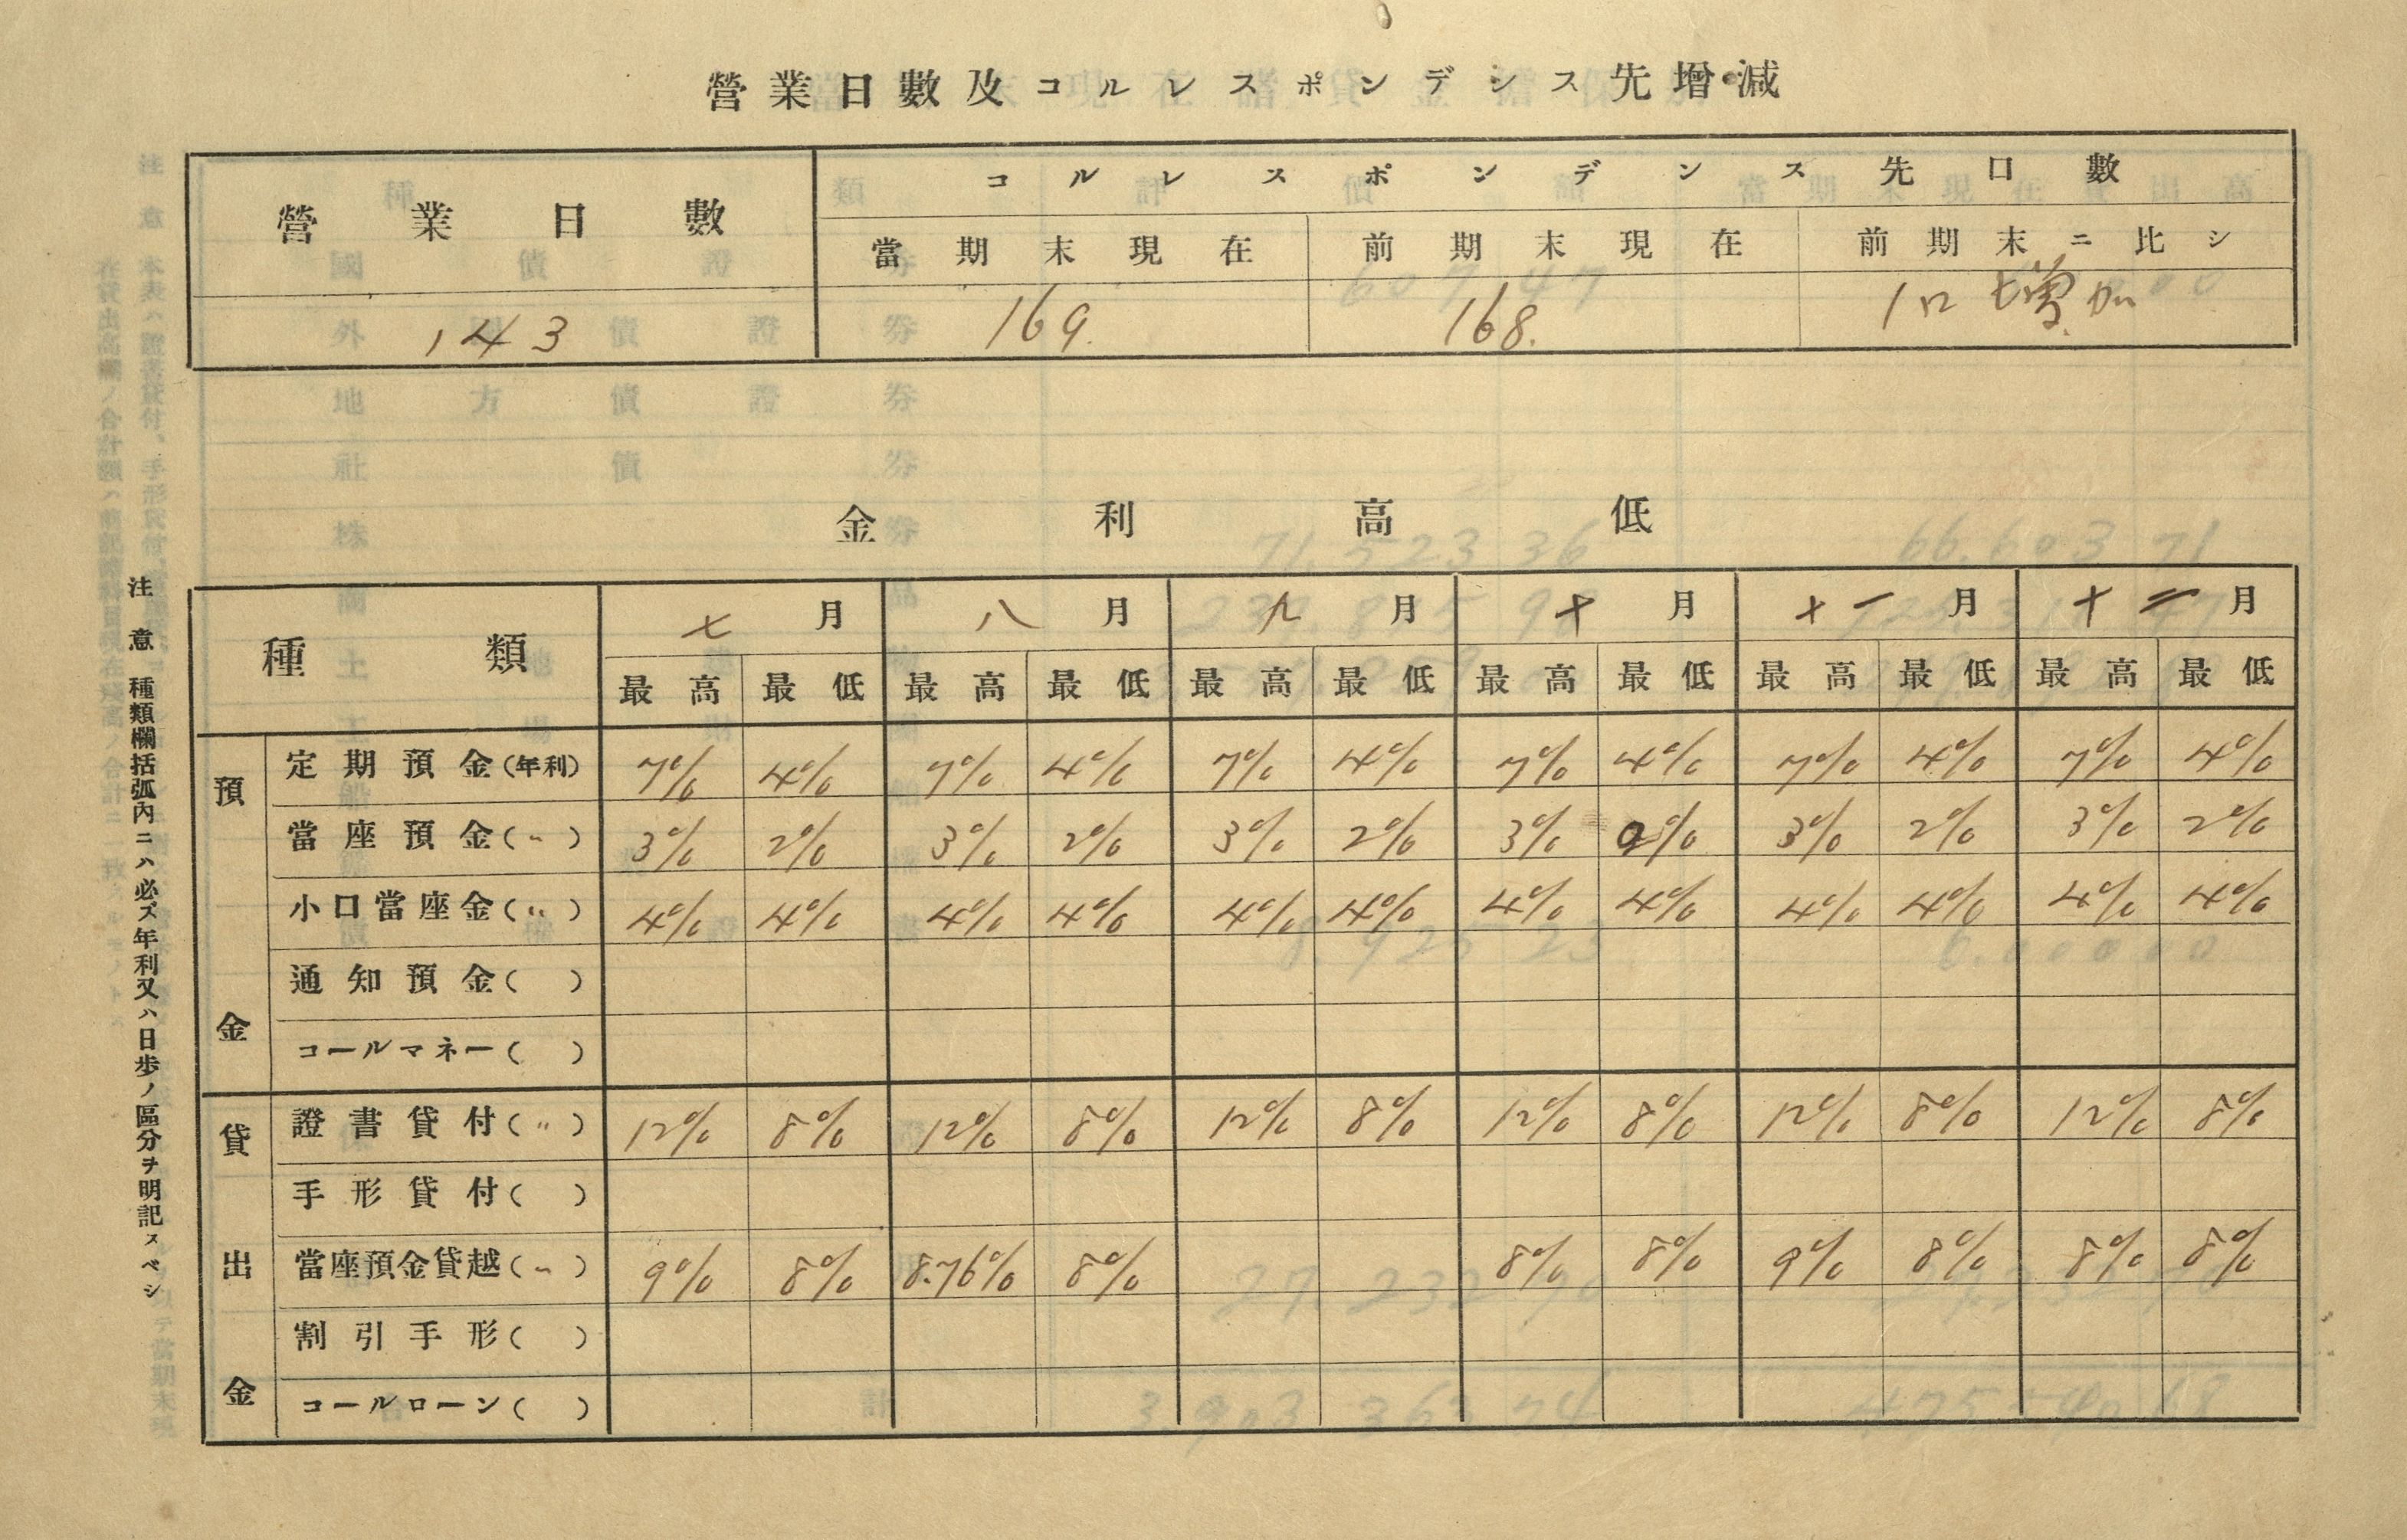 營業日數及コルレスポンデンス先增減
營業日數 コルレスポンデンス先口數
當期末現在 前期末現在 前期末ニ比シ
143 169. 168. 1口增加
金利高低
種類 七月 八月 九月 十月 十一月 十二月
最高 最低 最高 最低 最高 最低 最高 最低 最高 最低 最高 最低
預金
定期預金(年利) 7% 4% 7% 4% 7% 4% 7% 4% 7% 4% 7% 4%
當座預金(〃) 3% 2% 3% 2% 3% 2% 3% 2% 3% 2% 3% 2%
小口當座金(〃) 4% 4% 4% 4% 4% 4% 4% 4% 4% 4% 4% 4%
通知預金( )
コールマネー( )
貸出金
證書貸付(〃) 12% 8% 12% 8% 12% 8% 12% 8% 12% 8% 12% 8%
手形貸付( )
當座預金貸越(〃) 9% 8% 8.76% 8% 8% 8% 9% 8% 8% 8%
割引手形( )
コールローン( )
注意 種類欄括弧內ニハ必ズ年利又ハ日步ノ區分ヲ明記スベシ